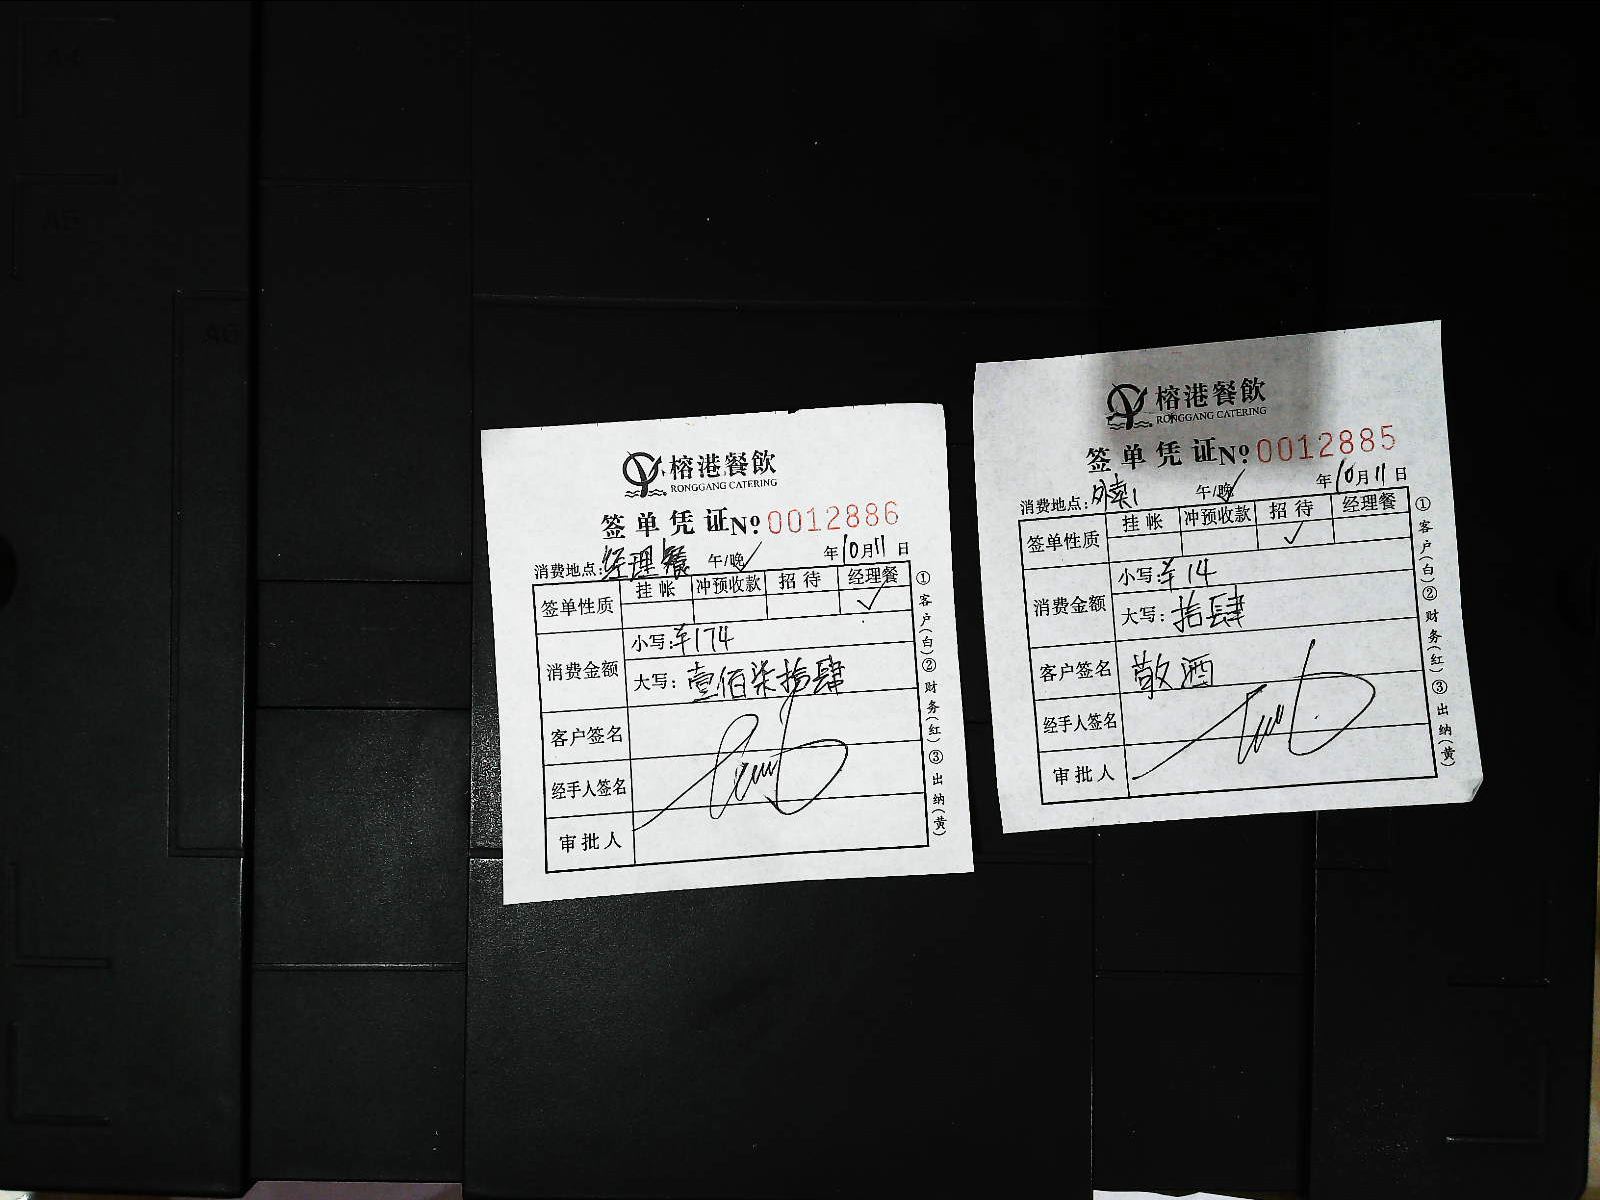 榕港餐飲
RONGGANG CATERING
签单凭证№0012886
消费地点:经理餐 午/晚✓ 年10月11日
签单性质 挂帐 冲预收款 招待 经理餐
✓
消费金额 小写:¥174
大写:壹佰柒拾肆
客户签名
经手人签名
审批人
①客户(白)②财务(红)③出纳(黄)
榕港餐飲
RONGGANG CATERING
签单凭证№0012885
消费地点:外卖1 午/晚✓ 年10月11日
签单性质 挂帐 冲预收款 招待 经理餐
✓
消费金额 小写:¥14
大写:拾肆
客户签名 敬酒
经手人签名
审批人
①客户(白)②财务(红)③出纳(黄)